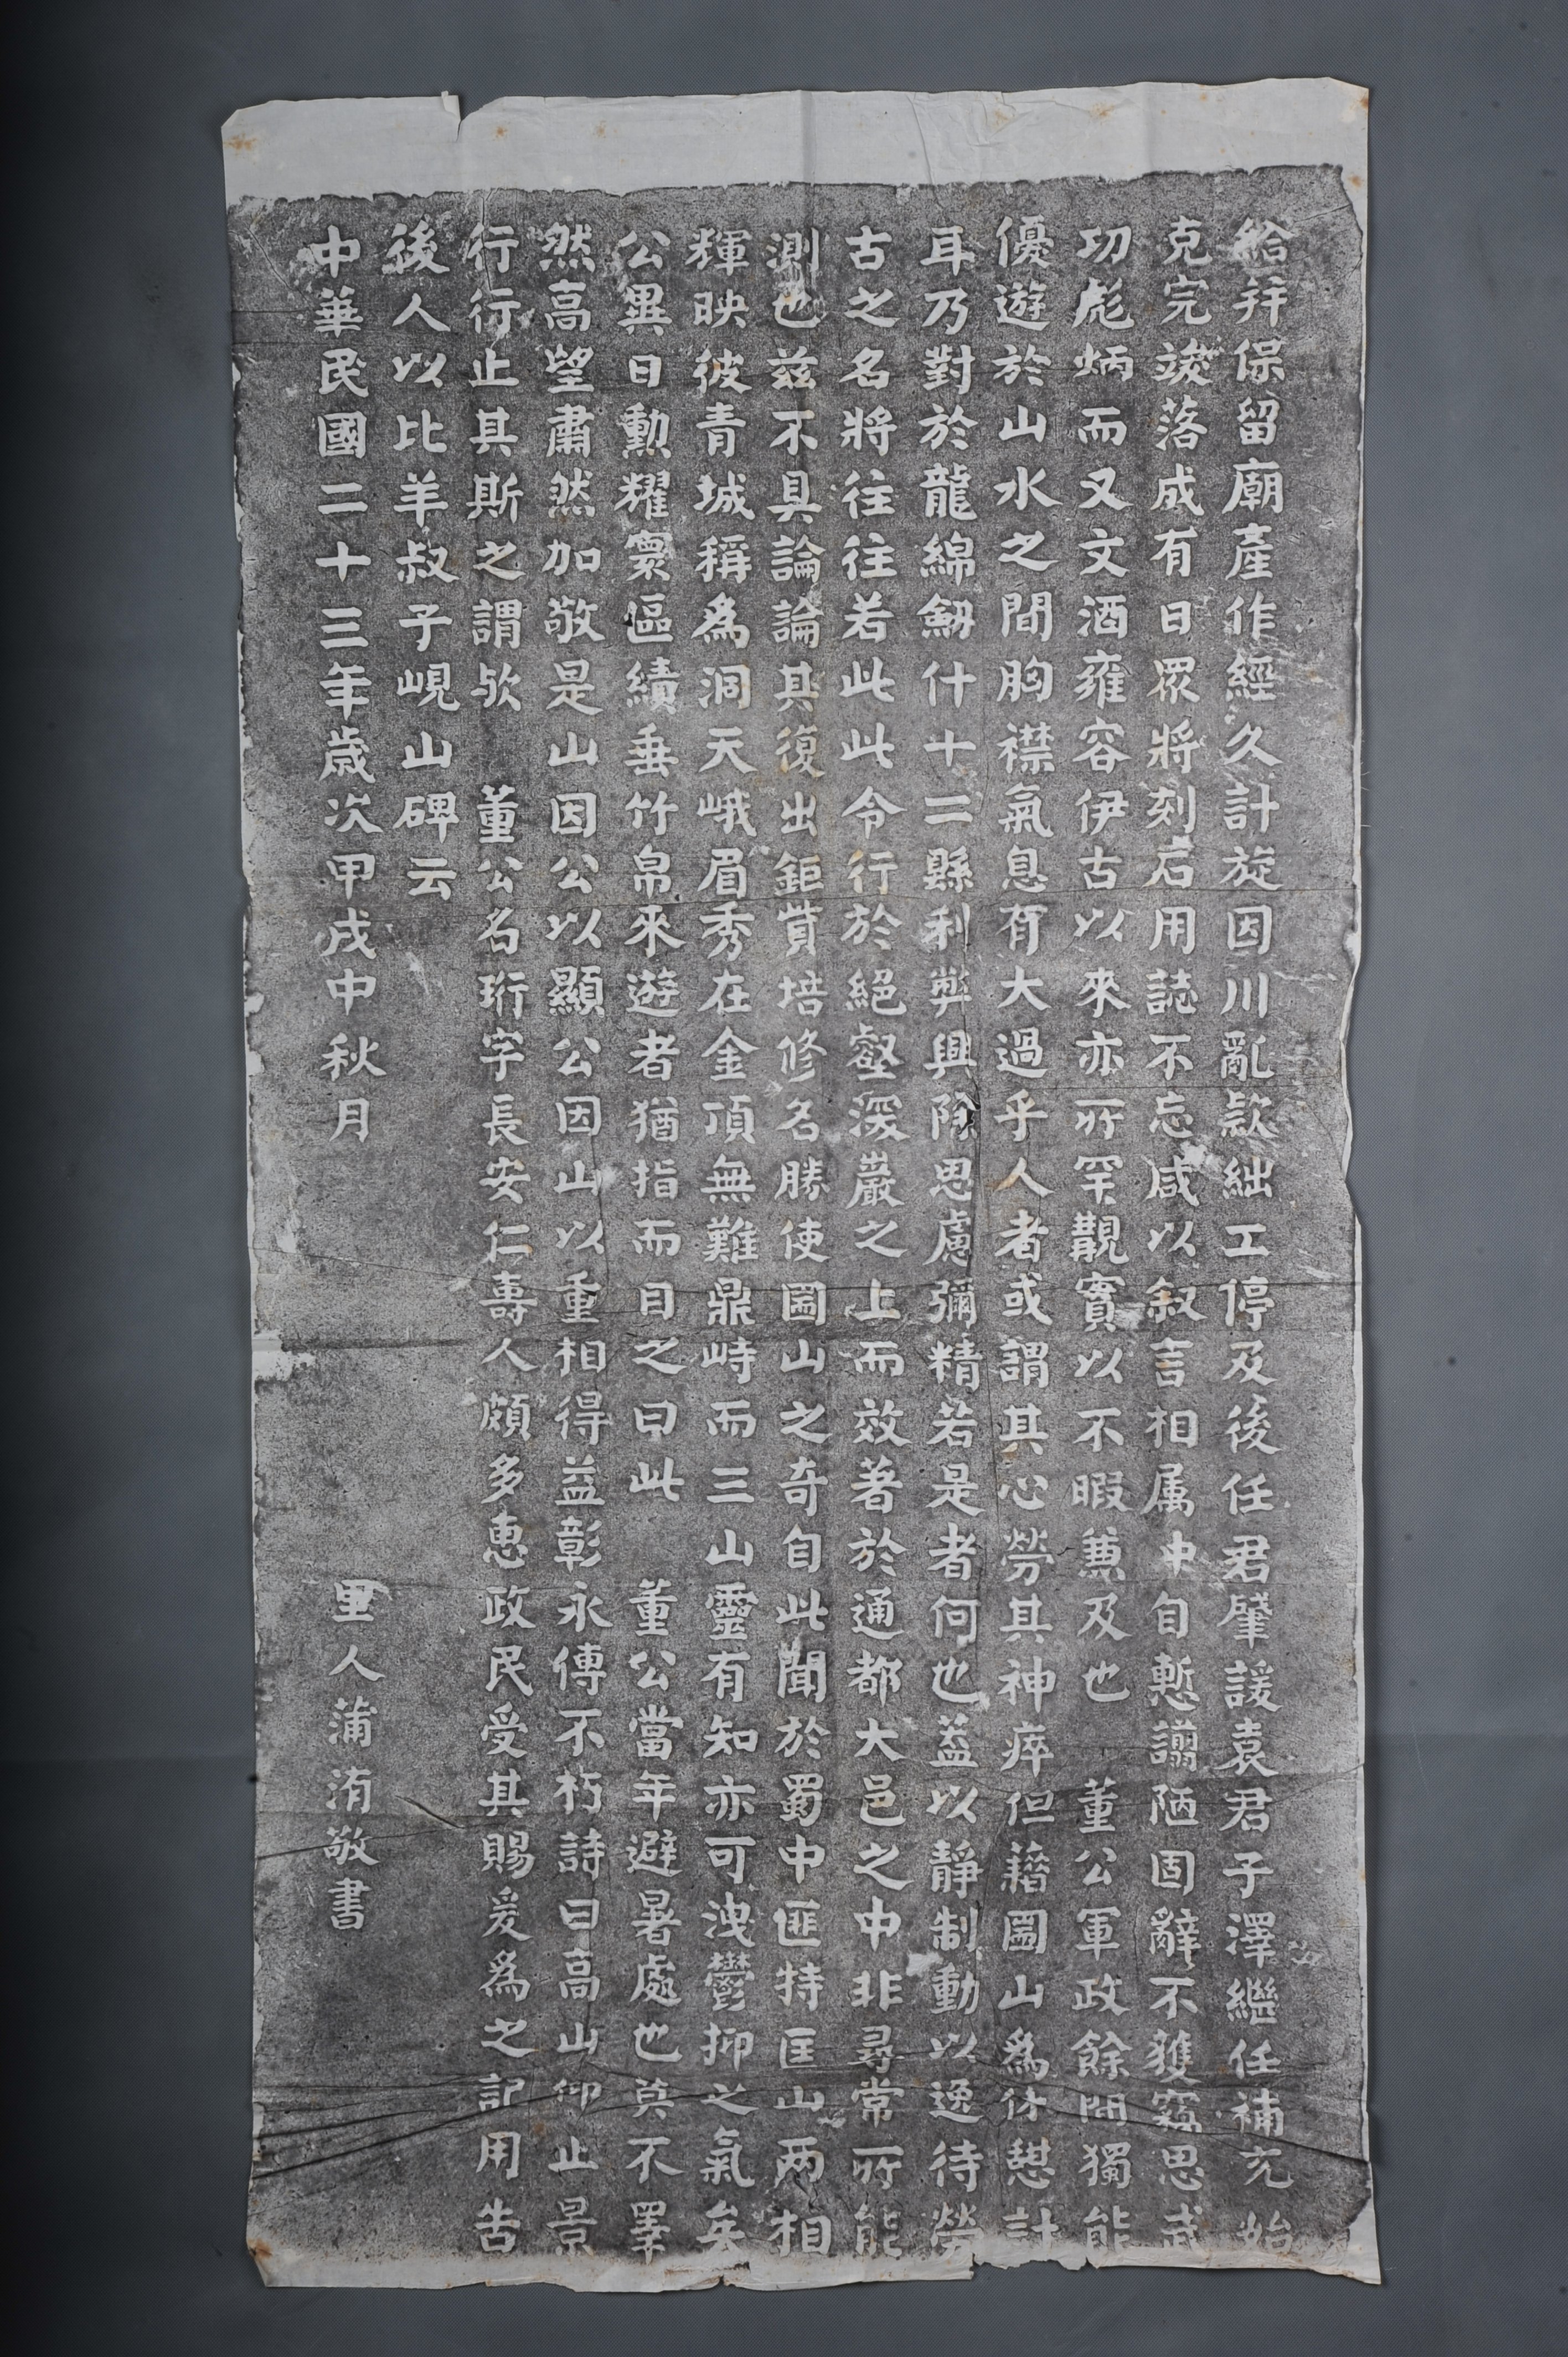 給幷保留廟產作經久計旋因川亂款絀工停及後任君肇諼袁君子澤繼任補充始
克完竣落成有日眾將刻石用誌不忘咸以叙言相属中自慙譾陋固辭不獲竊思武
功彪炳而又文酒雍容伊古以來亦所罕覯實以不暇兼及也董公軍政餘閒獨能
優遊於山水之間胸襟氣息有大過乎人者或謂其心勞其神瘁但藉圌山為休憩計
耳乃對於龍綿劒什十二縣利弊興除思慮彌精若是者何也葢以靜制動以逸待勞
古之名將往往若此此令行於絕壑深巖之上而效著於通都大邑之中非尋常所能
測也茲不具論論其復出鉅貲培修名勝使圌山之奇自此聞於蜀中匪特匡山两相
輝映彼青城稱為洞天峨眉秀在金頂無難鼎峙而三山靈有知亦可洩鬱抑之氣矣
公異日勳耀寰區績垂竹帛來遊者猶指而目之曰此董公當年避暑處也莫不睪
然高望肅然加敬是山因公以顯公因山以重相得益彰永傳不朽詩曰高山仰止景
行行止其斯之謂欤董公名珩字長安仁壽人頗多惠政民受其賜爰為之記用告
後人以比羊叔子峴山碑云
中華民國二十三年歲次甲戌中秋月里人蒲洧敬書